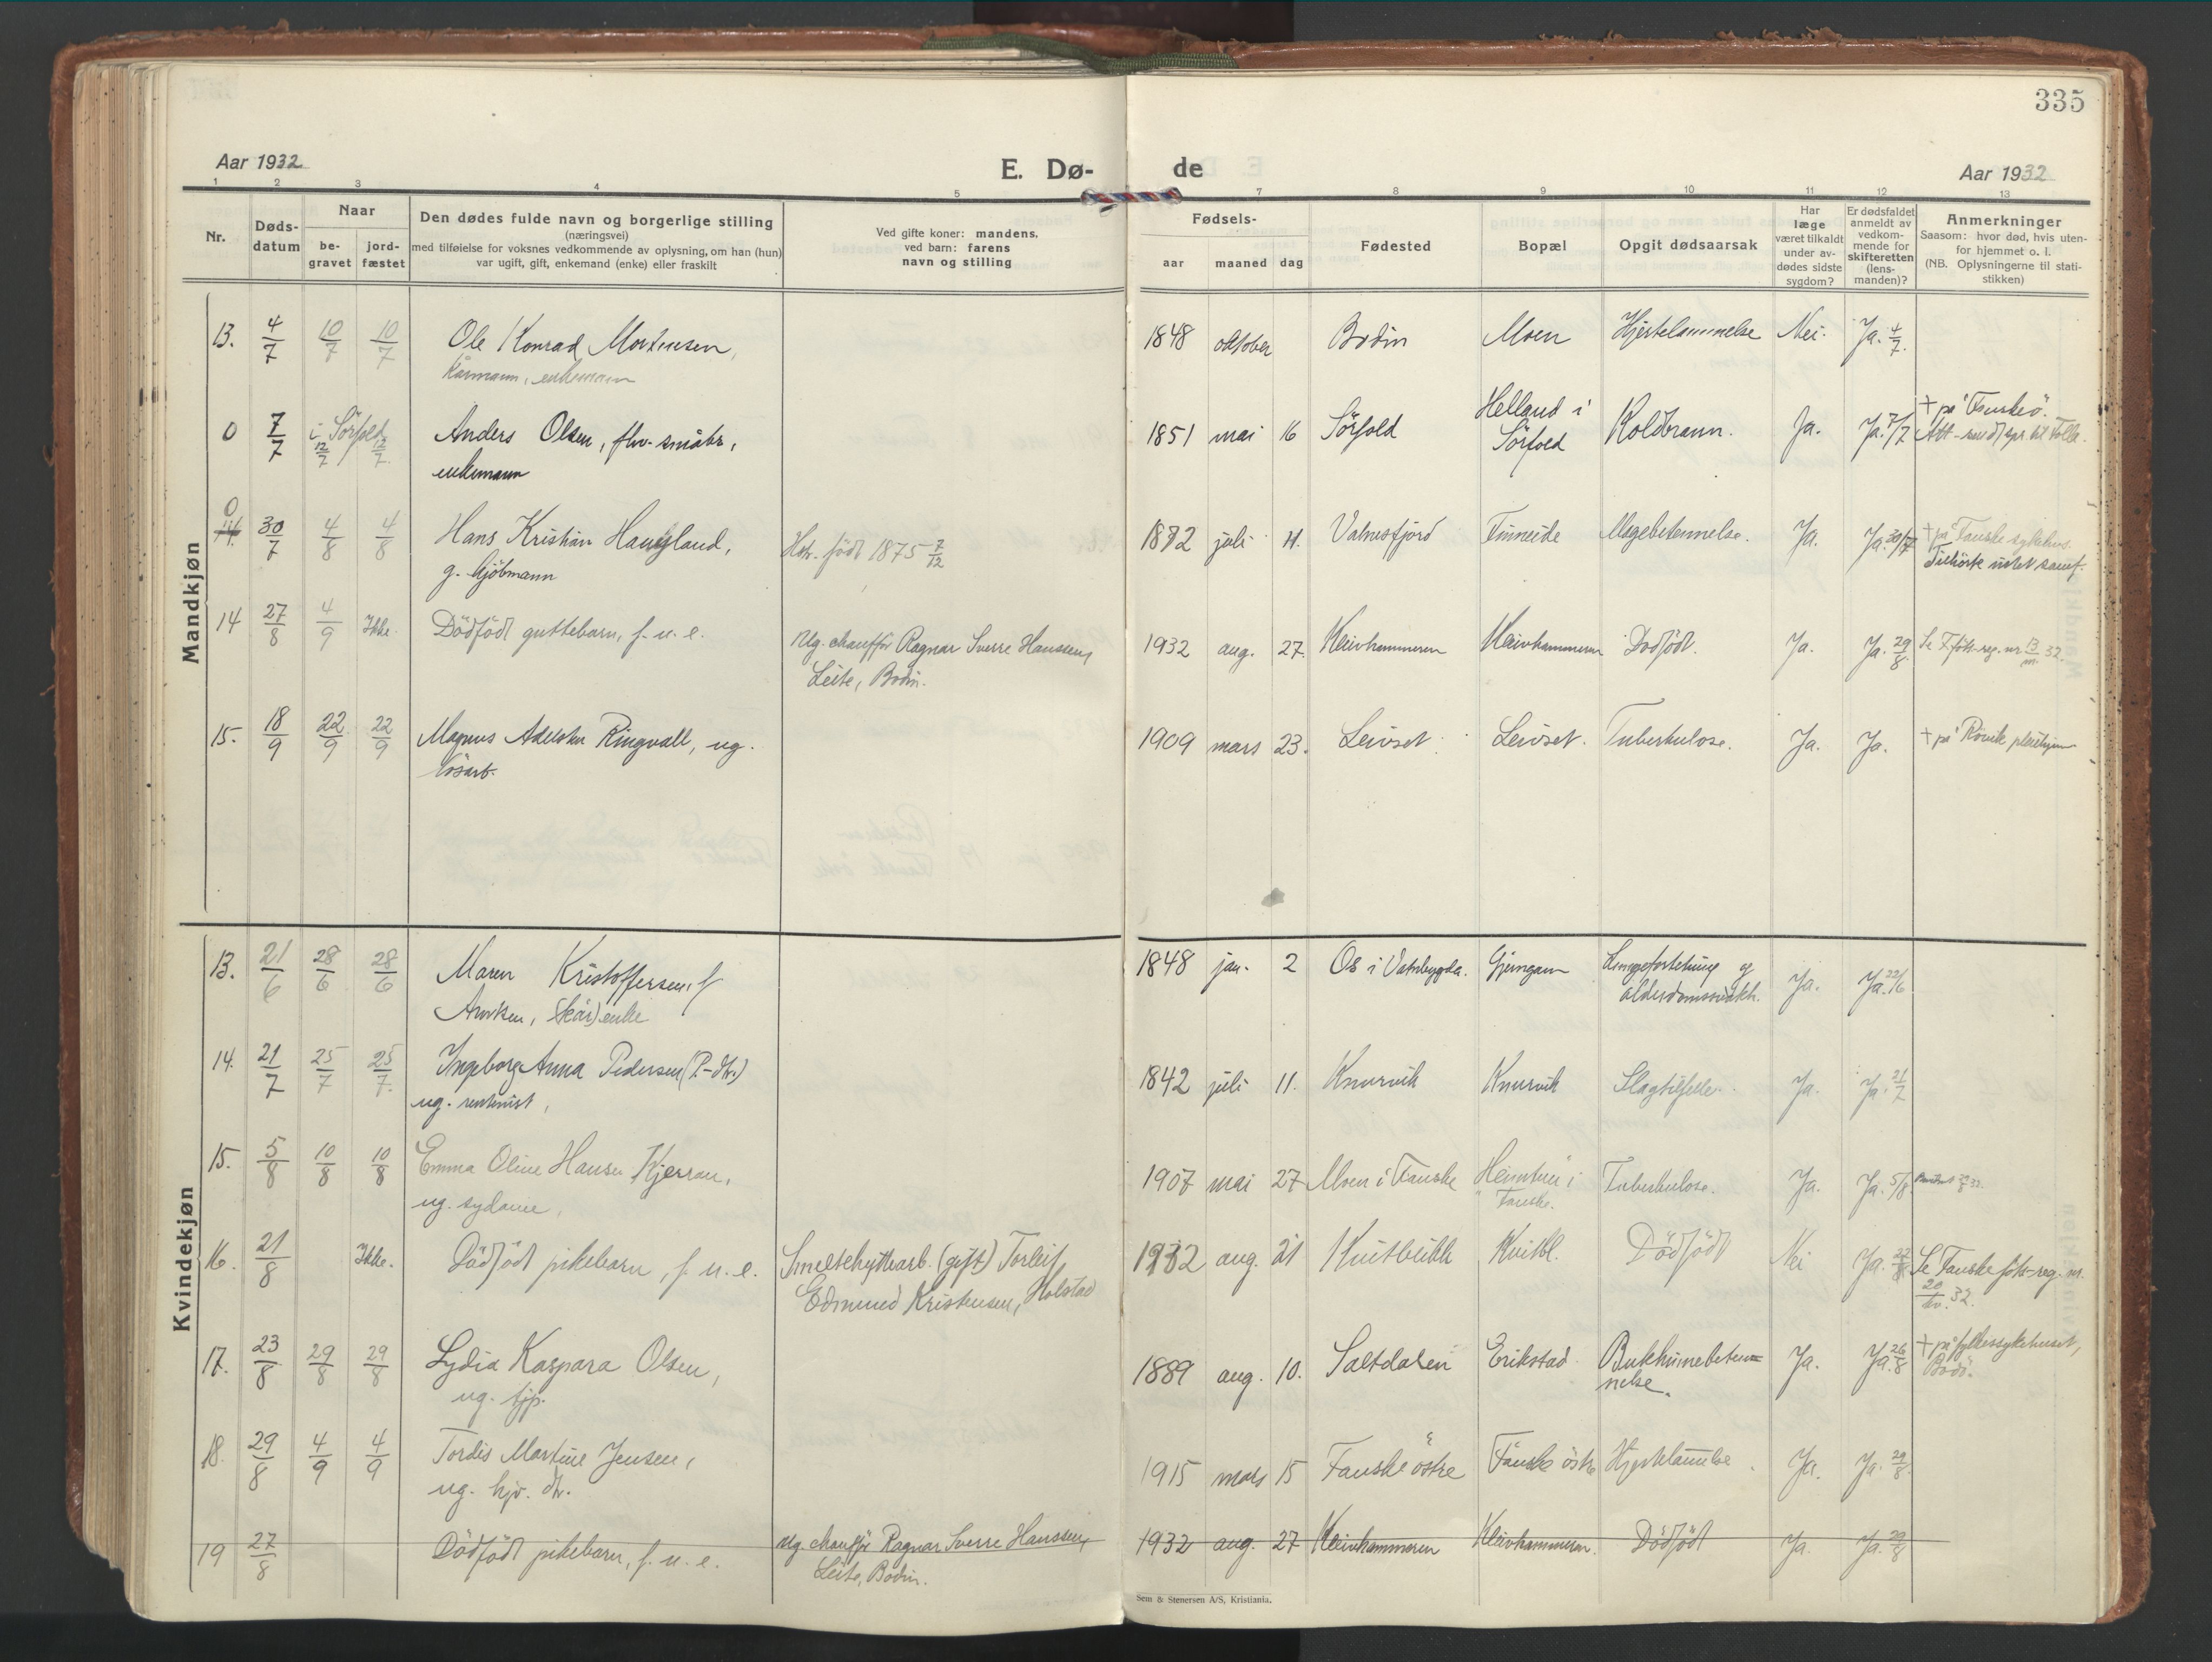 335
Aar 1932
E. Dø-
de
Aar 1932
1 2 3 4 5 7 8 9 10 11 12 13
Nr.
Døds-
datum
Naar
be-
gravet
jord-
fæstet
Den dødes fulde navn og borgerlige stilling
(næringsvei)
med tilføielse for voksnes vedkommende av oplysning, om han (hun)
var ugift, gift, enkemand (enke) eller fraskilt
Ved gifte koner: mandens,
ved barn: farens
navn og stilling
Fødsels-
aar maaned dag
Fødested
Bopæl
Opgit dødsaarsak
Har
læge
været tilkaldt
under av-
dødes sidste
sygdom?
Er dødsfaldet
anmeldt av
vedkom-
mende for
skifteretten
(lens-
manden)?
Anmerkninger
Saasom: hvor død, hvis uten-
for hjemmet o. l.
(NB. Oplysningerne til stati-
stikken)
Mandkjøn
13. 4/7 10/7 10/7 Ole Konrad Mortensen, 1848 oktober Bodin Moen Hjertelammelse Nei. Ja. 4/7.
Kårmann, enkemann
0 7/7 i Sörfold 12/7 12/7 Anders Olsen, fhv. småbr., 1851 mai 16 Sörfold Helland i Sörfold Koldbrann. Ja. Ja. 7/7 + på Fauske
enkemann
0 14. 30/7 4/8 4/8 Hans Kristian Haugland, Hstr. født 1875 7/12 1872 juli 11. Valnesfjord Finneide Magebetennelse. Ja. Ja. 30/7 + på Fauske sykehus.
g. kjöbmann Tilhörte intet samf.
14 27/8 4/9 Ikke. Dödfödt guttebarn, f. u. e. Ug. chaufför Ragnar Sverre Hanssen, 1932 aug. 27. Kleivhammeren Kleivhammeren Dödfödt. Ja. Ja. 29/8. Se F. föds-reg. nr 13/m. 32.
Leite, Bodin.
15. 18/9 22/9 22/9 Magnus Adelsten Ringvall, ug. 1909 mars 23. Leivset Leivset. Tuberkulose. Ja. Ja. + på Rövik pleiehjem
lösarb.
Kvindekjøn
13. 21/6 28/6 28/6 Maren Kristoffersen, f 1848 jan. 2 Os i Vatnbygda. Gjemgam Lungefortetning og Ja. Ja. 22/6
(kår)enke alderdomssvakh.
14. 21/7 25/7 25/7. Ingeborg Anna Pedersen (P.-dtr.) 1842 juli 11. Knurvik Knurvik Slagtilfelle. Ja. Ja. 21/7
ug. rentenist,
15. 5/8 10/8 10/8 Emma Oline Hansen Kjerran, 1907 mai 27 Moen i Fauske Heimtun i Tuberkulose. Ja. Ja. 5/8
ug. sydame, Fauske.
16. 21/8 Ikke. Dödfödt pikebarn, f. u. e. Smeltehyttearb. (gift) Torleif 1932 aug. 21 Kvitblikk Kvitbl. Dödfödt Nei Ja. 27/8 Se Fauske föds-reg. nr.
Edmund Kristensen, Holstad 20/kv. 32.
17. 23/8 29/8 29/8 Lydia Kaspara Olsen, 1889 aug. 10. Saltdalen Erikstad Bukhinnebeten- Ja. Ja. 26/8 + på fylkessykehuset,
ug. tjp. nelse. Bodö.
18. 29/8 4/9 4/9 Tordis Martine Jensen, 1915 mars 15 Fauske östre Fauske östre Hjertelammelse. Ja. Ja. 29/8.
ug. hjv. dtr.
19 27/8 Dödfödt pikebarn, f. u. e. Ug. chaufför Ragnar Sverre Hanssen, 1932 aug. 27 Kleivhammeren Kleivhammeren. Dödfödt Ja. Ja. 29/8
Leite, Bodin.
Sem & Stenersen A/S, Kristiania.